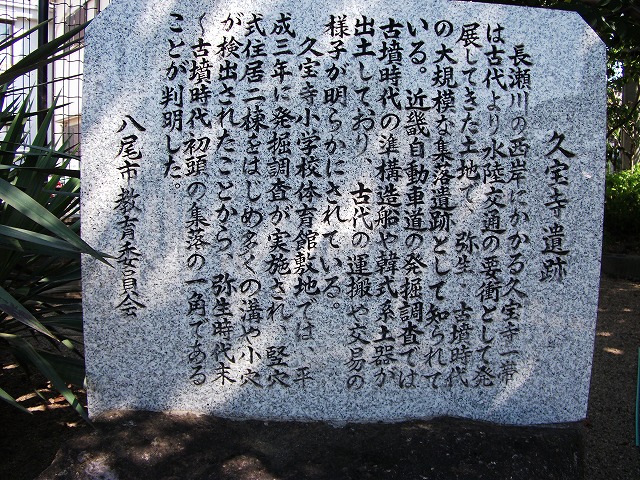 久宝寺遺跡
長瀬川の西岸にかかる久宝寺一帯
は古代より水陸交通の要衝として発
展してきた土地で、弥生・古墳時代
の大規模な集落遺跡として知られて
いる。近畿自動車道の発掘調査では
古墳時代の準構造船や韓式系土器が
出土しており、古代の運搬や交易の
様子が明らかにされている。
久宝寺小学校体育館敷地では、平
成三年に発掘調査が実施され、竪穴
式住居二棟をはじめ多くの溝や小穴
が検出されたことから、弥生時代末
〜古墳時代初頭の集落の一角である
ことが判明した。
八尾市教育委員会